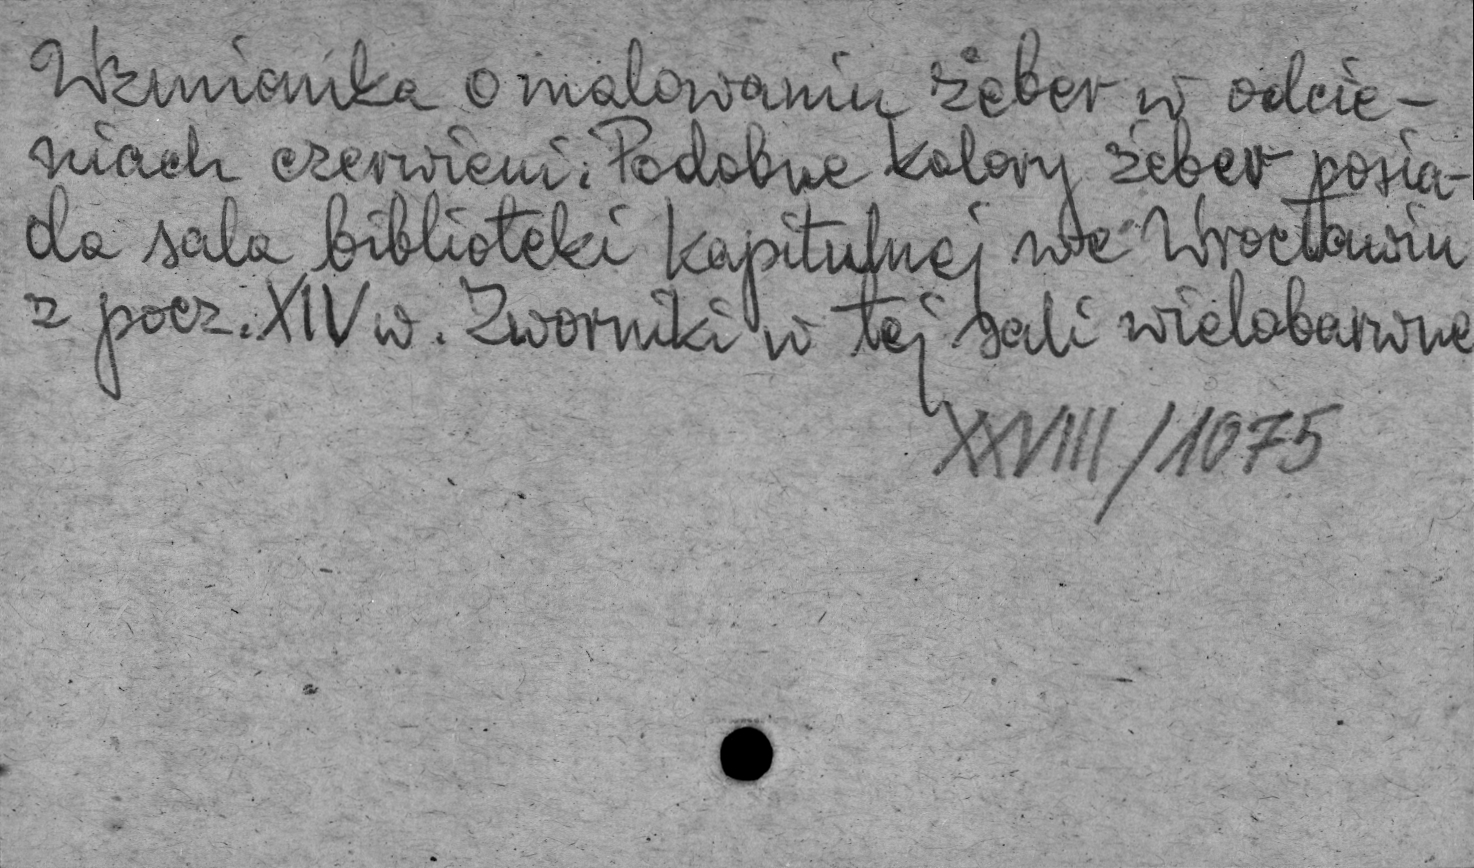 Wzmianka o malowaniu żeber w odcie-
niach czerwieni. Podobne kolory żeber posia-
da sala biblioteki kapitulnej we Wrocławiu
z pocz. XIV w. Zworniki w tej sali wielobarwne
XXVIII/1075